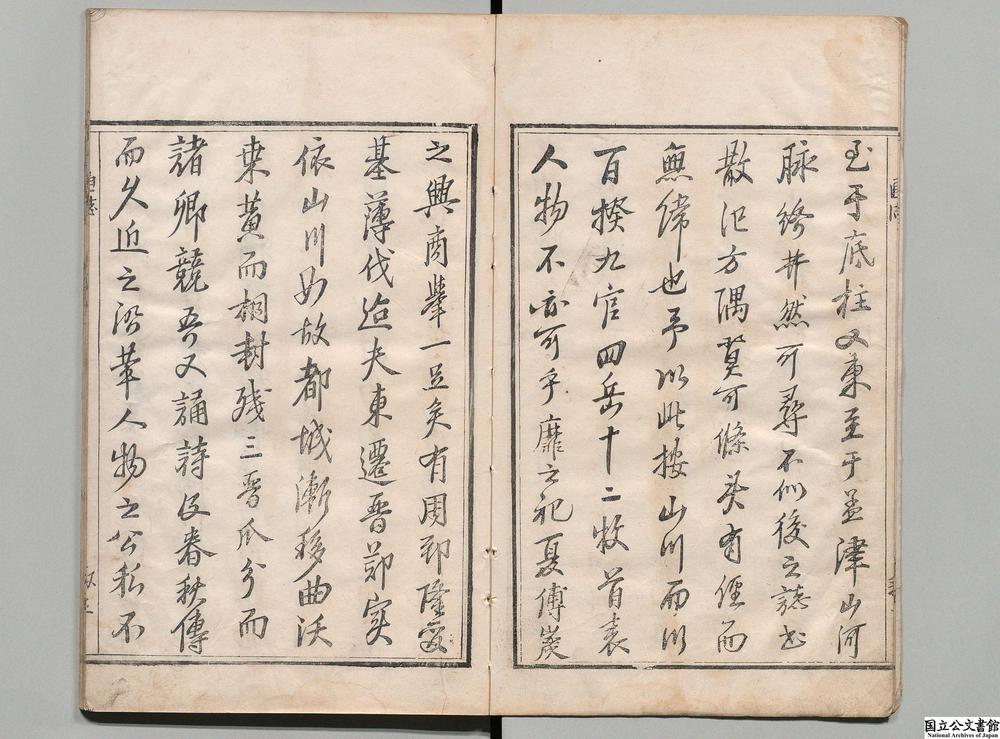 至于底柱又東至于孟津山河
脉絡井然可尋不似後之誌書
散氾方隅莫可條矣有經而
無緯也予以此按山川而以
百揆九官四岳十二牧首表
人物不亦可乎靡之祀夏傅巖
之興商舉一足矣有周郅隆
基薄伐迨夫東遷晉鄭實
依山川如故都城漸移曲沃
乘黃而桐封殘三晉瓜分而
諸卿競吾又誦詩及春秋傳
而久近之沿革人物之公私不
国立公文書館
National Archives of Japan